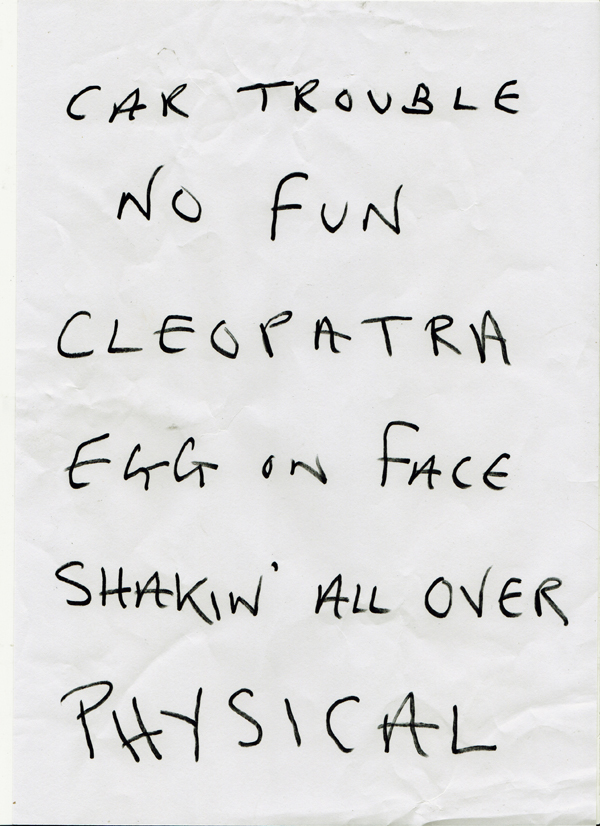 CAR TROUBLE
NO FUN
CLEOPATRA
EGG ON FACE
SHAKIN' ALL OVER
PHYSICAL